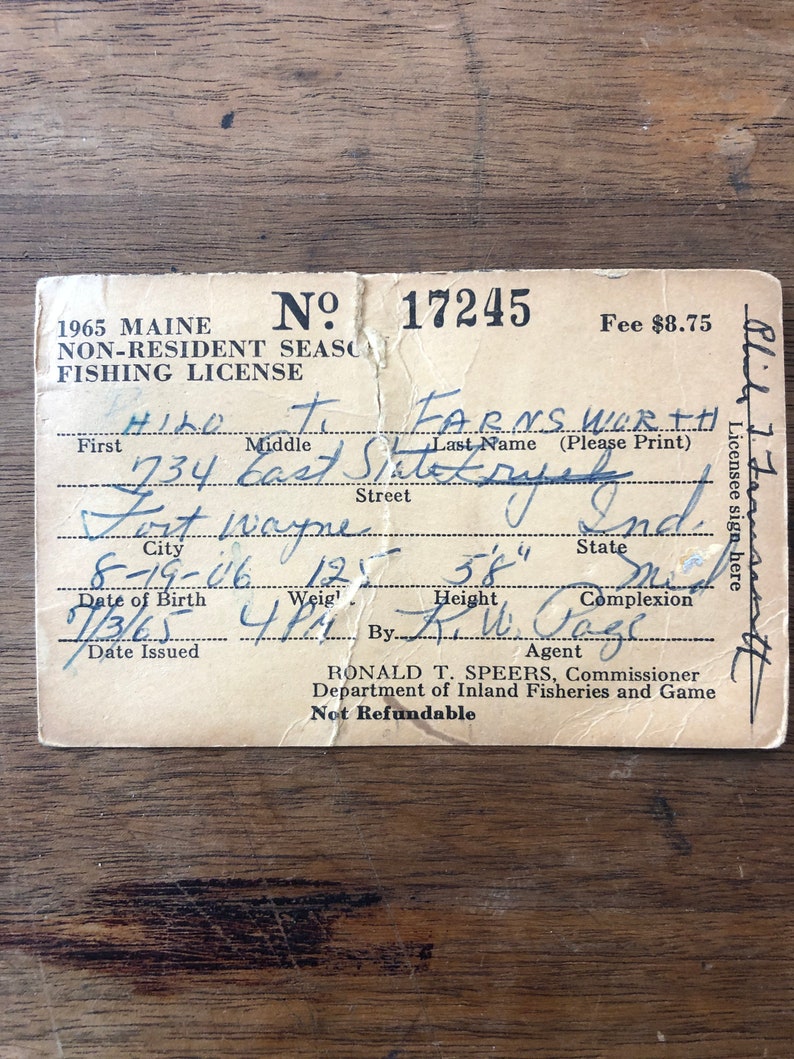 1965 MAINE No 17245 Fee $8.75
NON-RESIDENT SEASO
FISHING LICENSE
HILO T. FARNSWORTH
First Middle Last Name (Please Print)
734 East State
Street
Fort Wayne Ind.
City State
8-19-06 125 5'8" Med
Date of Birth Weight Height Complexion
7/3/65 4 PM By K. W. Page
Date Issued Agent
RONALD T. SPEERS, Commissioner
Department of Inland Fisheries and Game
Not Refundable
Philo T. Farnsworth
Licensee sign here